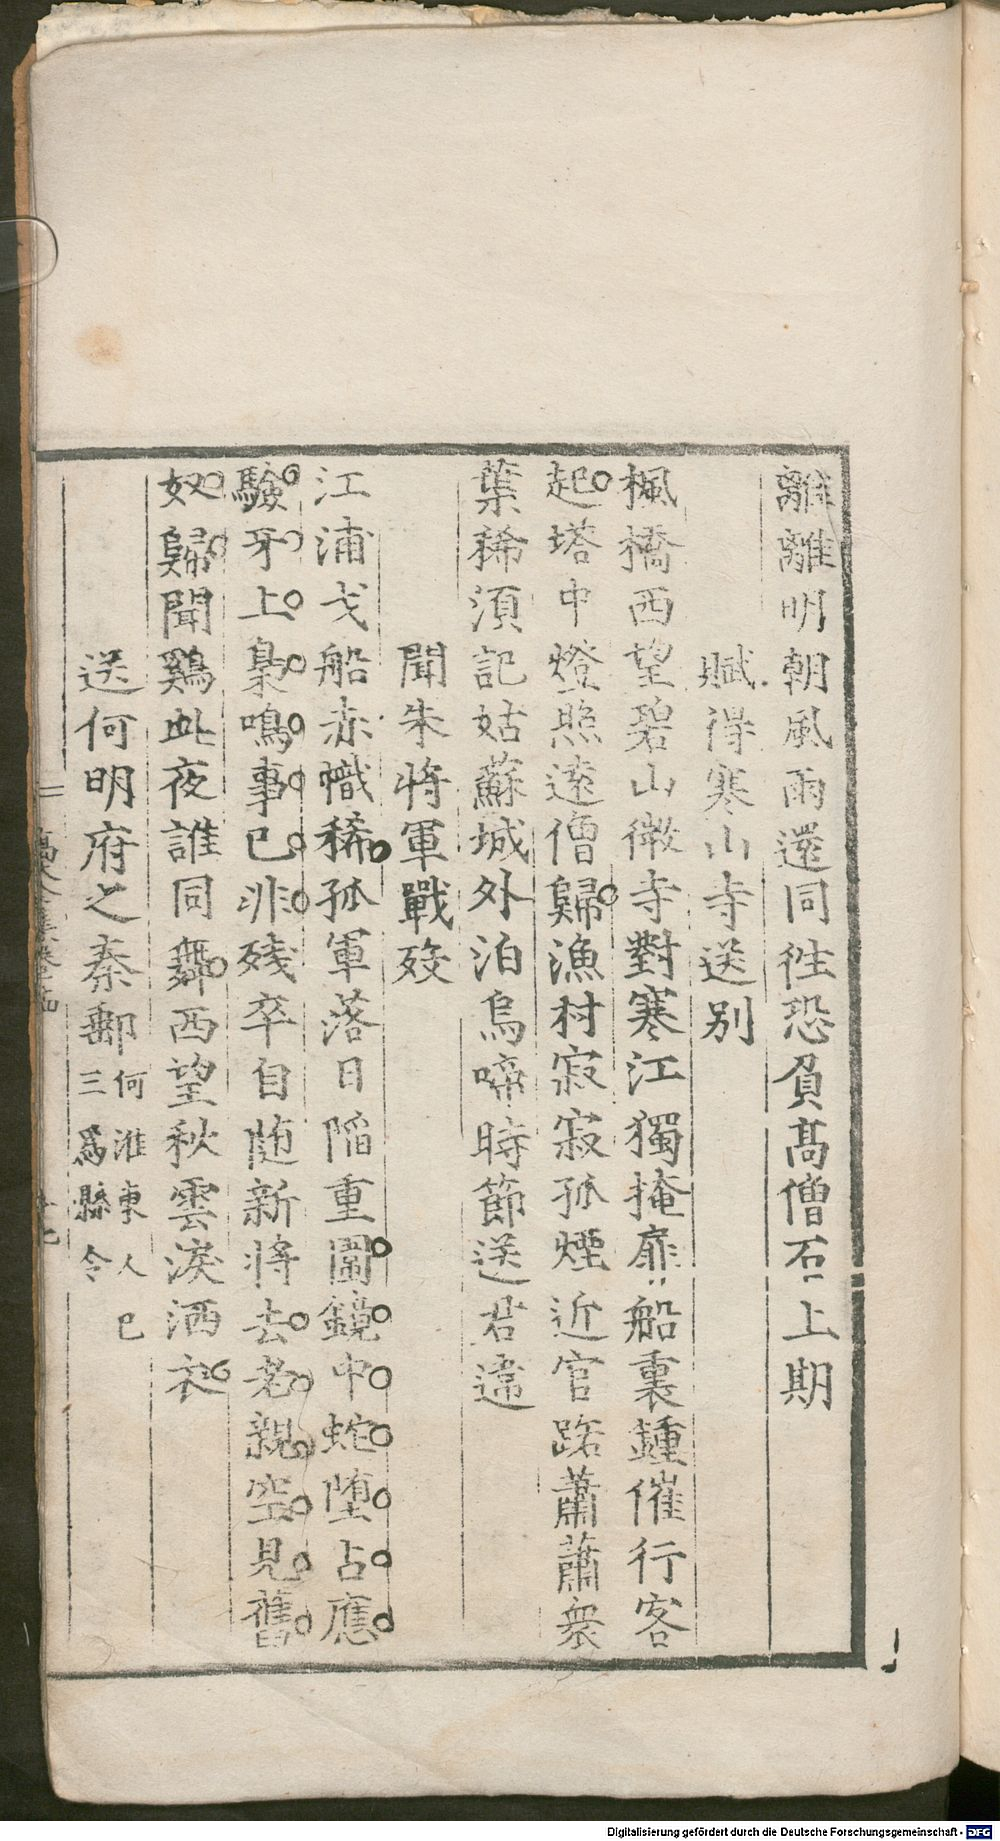 離離明朝風雨還同徃恐負髙僧石上期
賦得寒山寺送別
楓橋西望碧山微寺對寒江獨掩扉船裏鍾催行客
起塔中燈照遠僧歸漁村寂寂孤煙近官路蕭蕭衆
葉稀須記姑蘇城外泊烏啼時節送君違
聞朱將軍戰歿
江浦戈船赤幟稀孤軍落日陷重圍鏡中蛇墮占應
驗牙上梟鳴事已非殘卒自随新將去老親空見舊
奴歸聞鷄此夜誰同舞西望秋雲淚洒衣
送何明府之秦郵
何淮東人已
三爲縣令
Digitalisierung gefördert durch die Deutsche Forschungsgemeinschaft - DFG